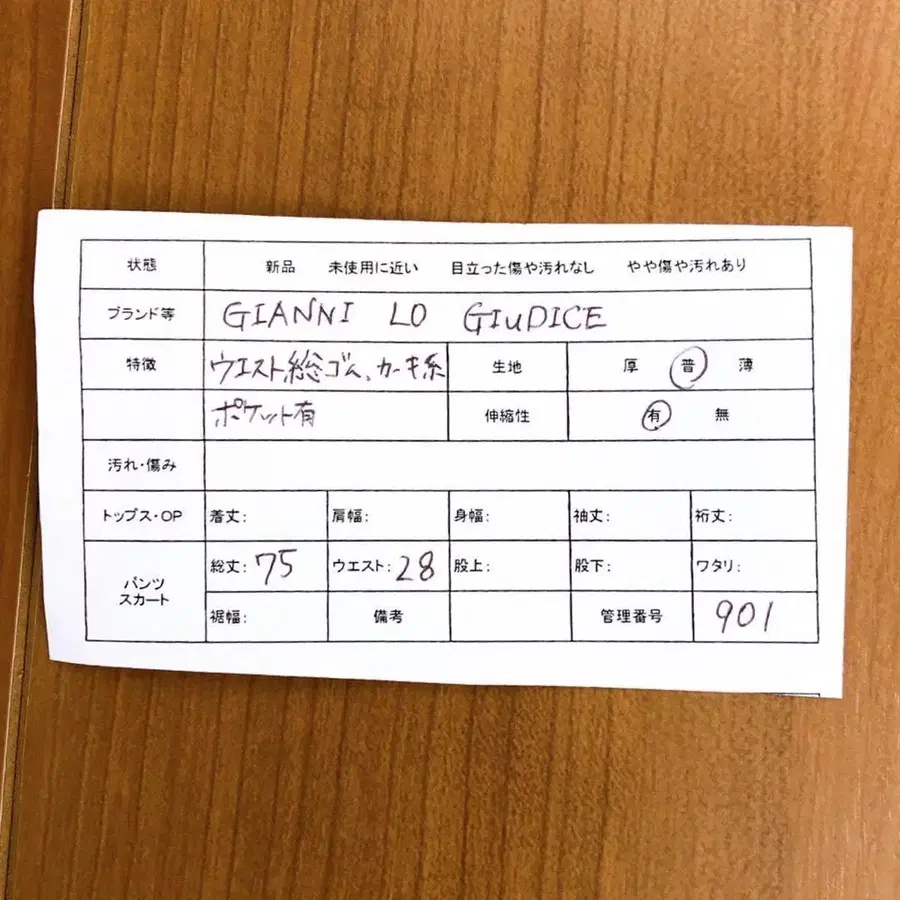 状態 新品 未使用に近い 目立った傷や汚れなし やや傷や汚れあり
ブランド等 GIANNI LO GIUDICE
特徴 ウエスト総ゴム、カーキ系 生地 厚 普 薄
ポケット有 伸縮性 有 無
汚れ・傷み
トップス・OP 着丈: 肩幅: 身幅: 袖丈: 裄丈:
パンツ スカート 総丈: 75 ウエスト: 28 股上: 股下: ワタリ:
裾幅: 備考 管理番号 901